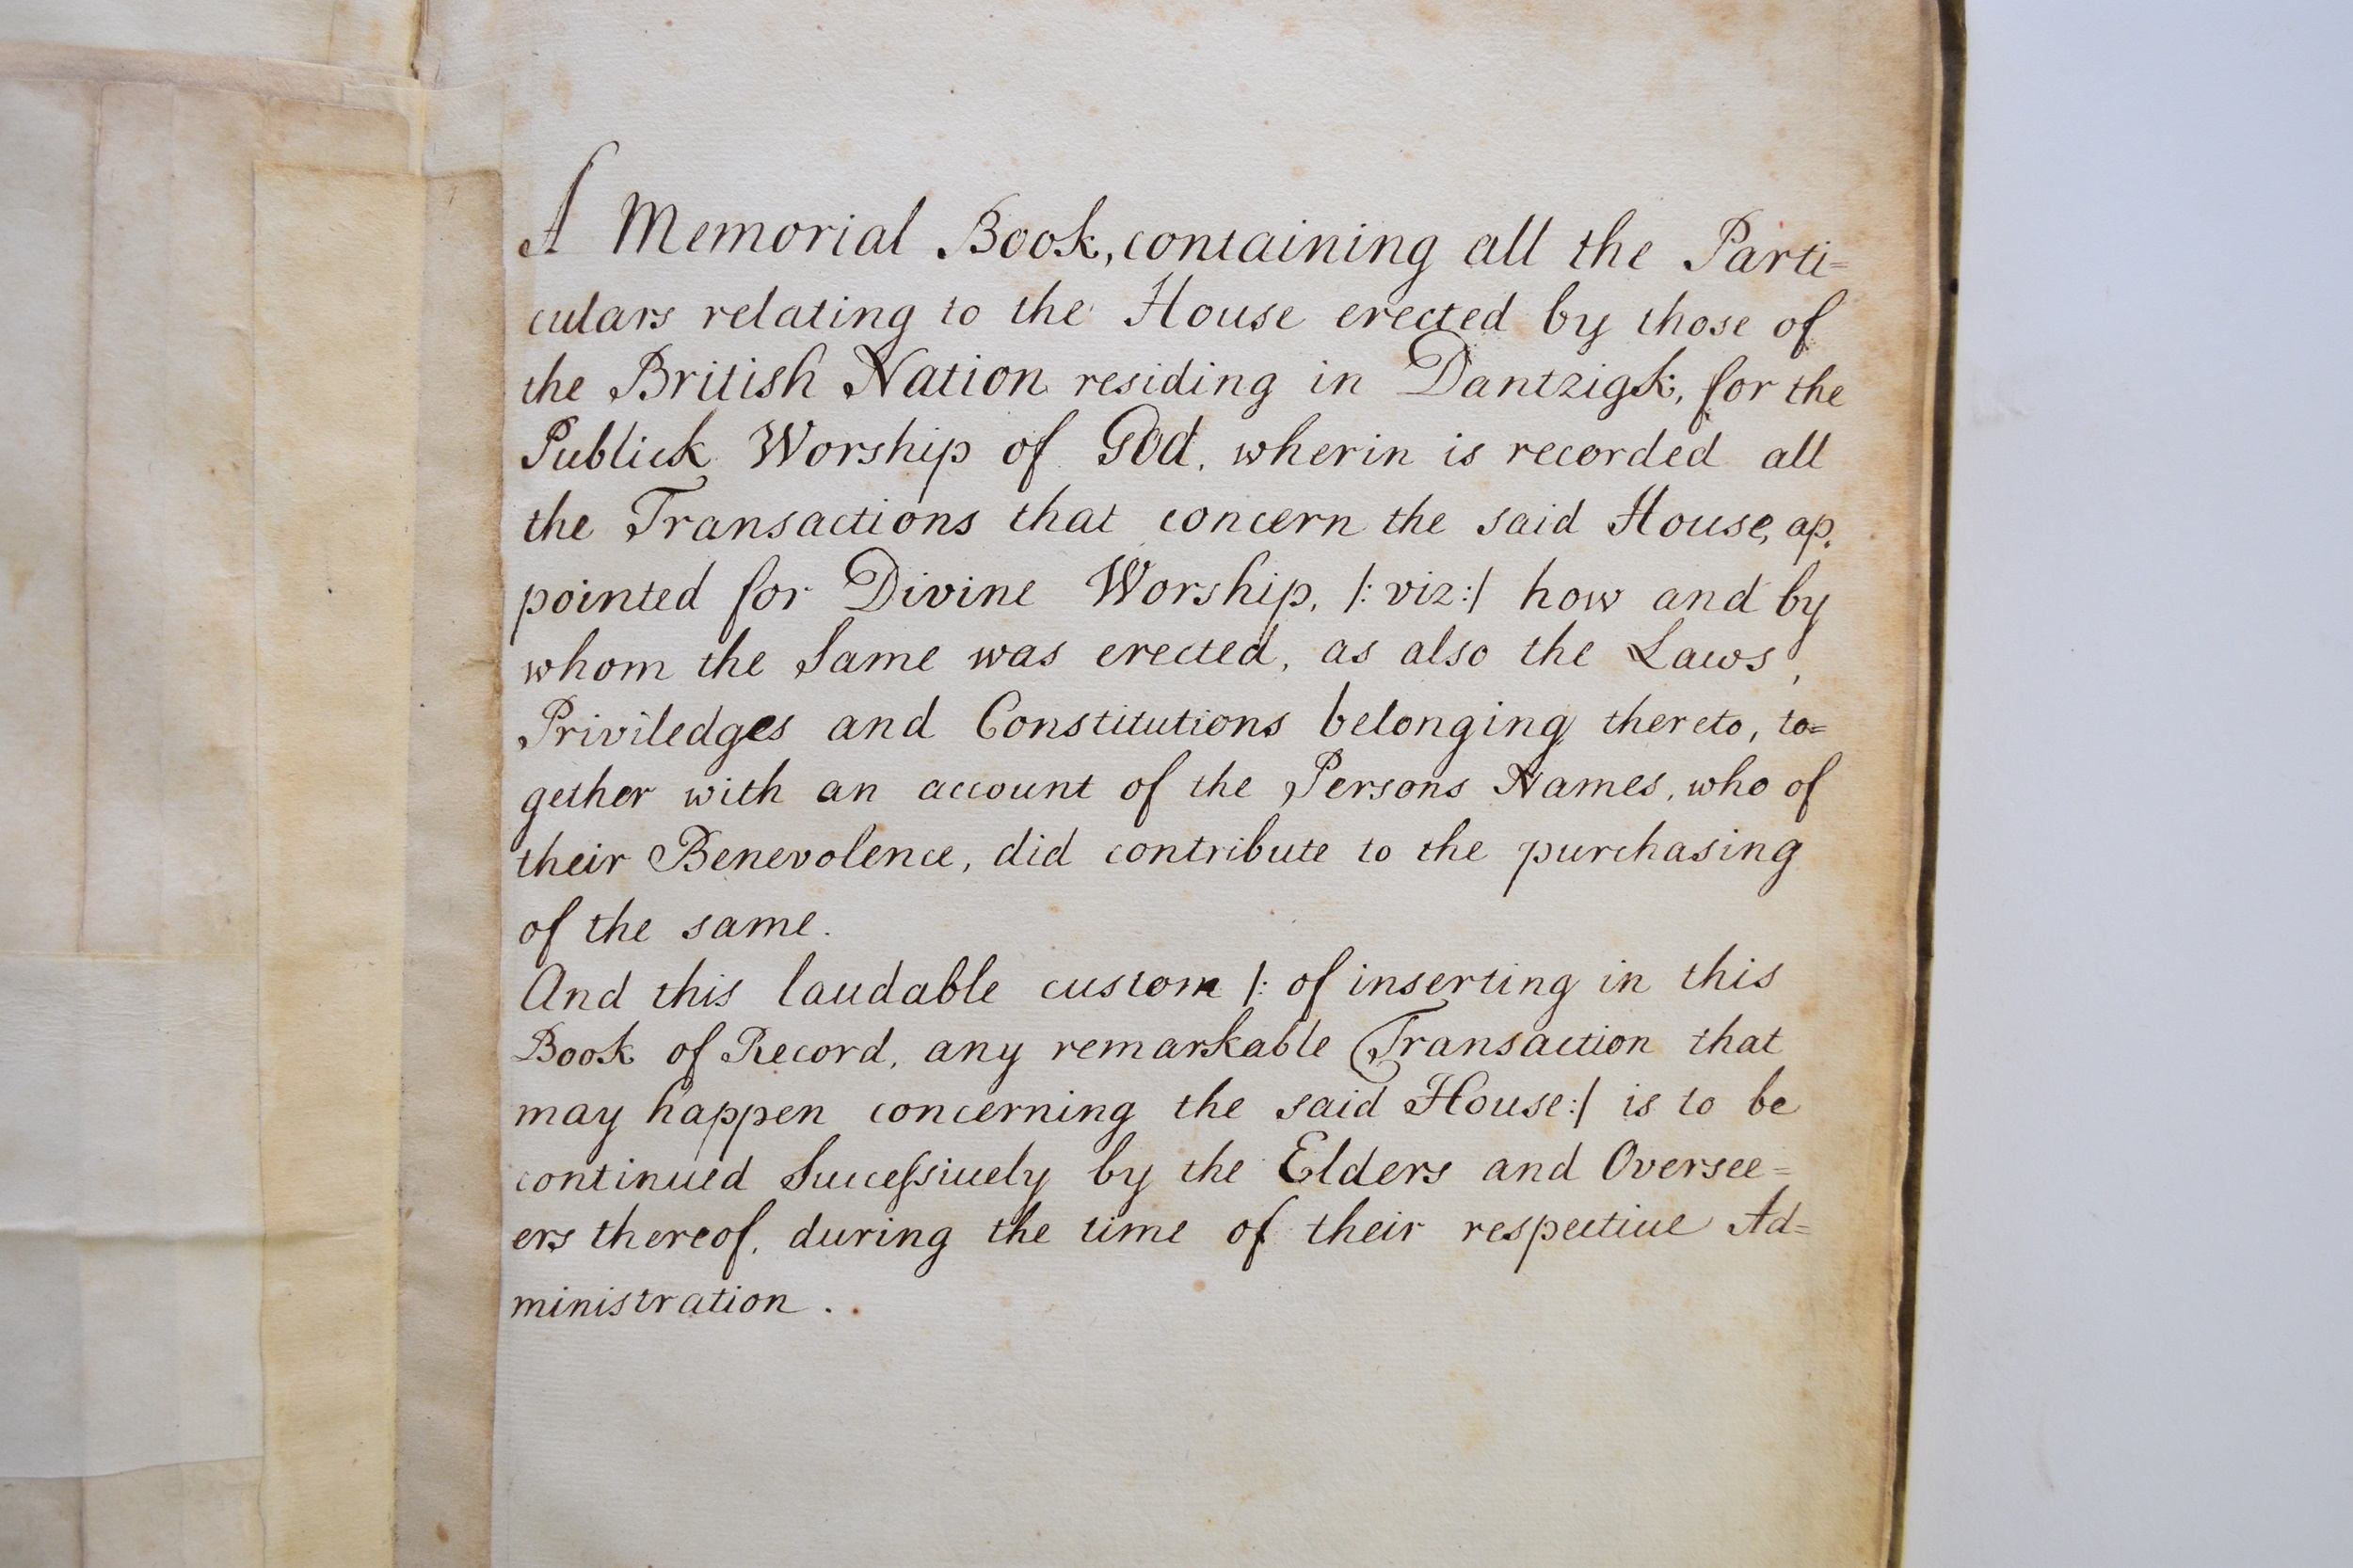 A Memorial Book, containing all the Parti=
culars relating to the House erected by those of
the British Nation residing in Dantzigk, for the
Publick Worship of God, wherin is recorded all
the Transactions that concern the said House, ap,
pointed for Divine Worship, /: viz:/ how and by
whom the Same was erected, as also the Laws,
Priviledges and Constitutions belonging thereto, to=
gether with an account of the Persons Names, who of
their Benevolence, did contribute to the purchasing
of the same.
And this laudable custom /: of inserting in this
Book of Record, any remarkable Transaction that
may happen concerning the said House:/ is to be
continued Succeſsiuely by the Elders and Oversee=
ers thereof, during the time of their respectiue Ad=
ministration.